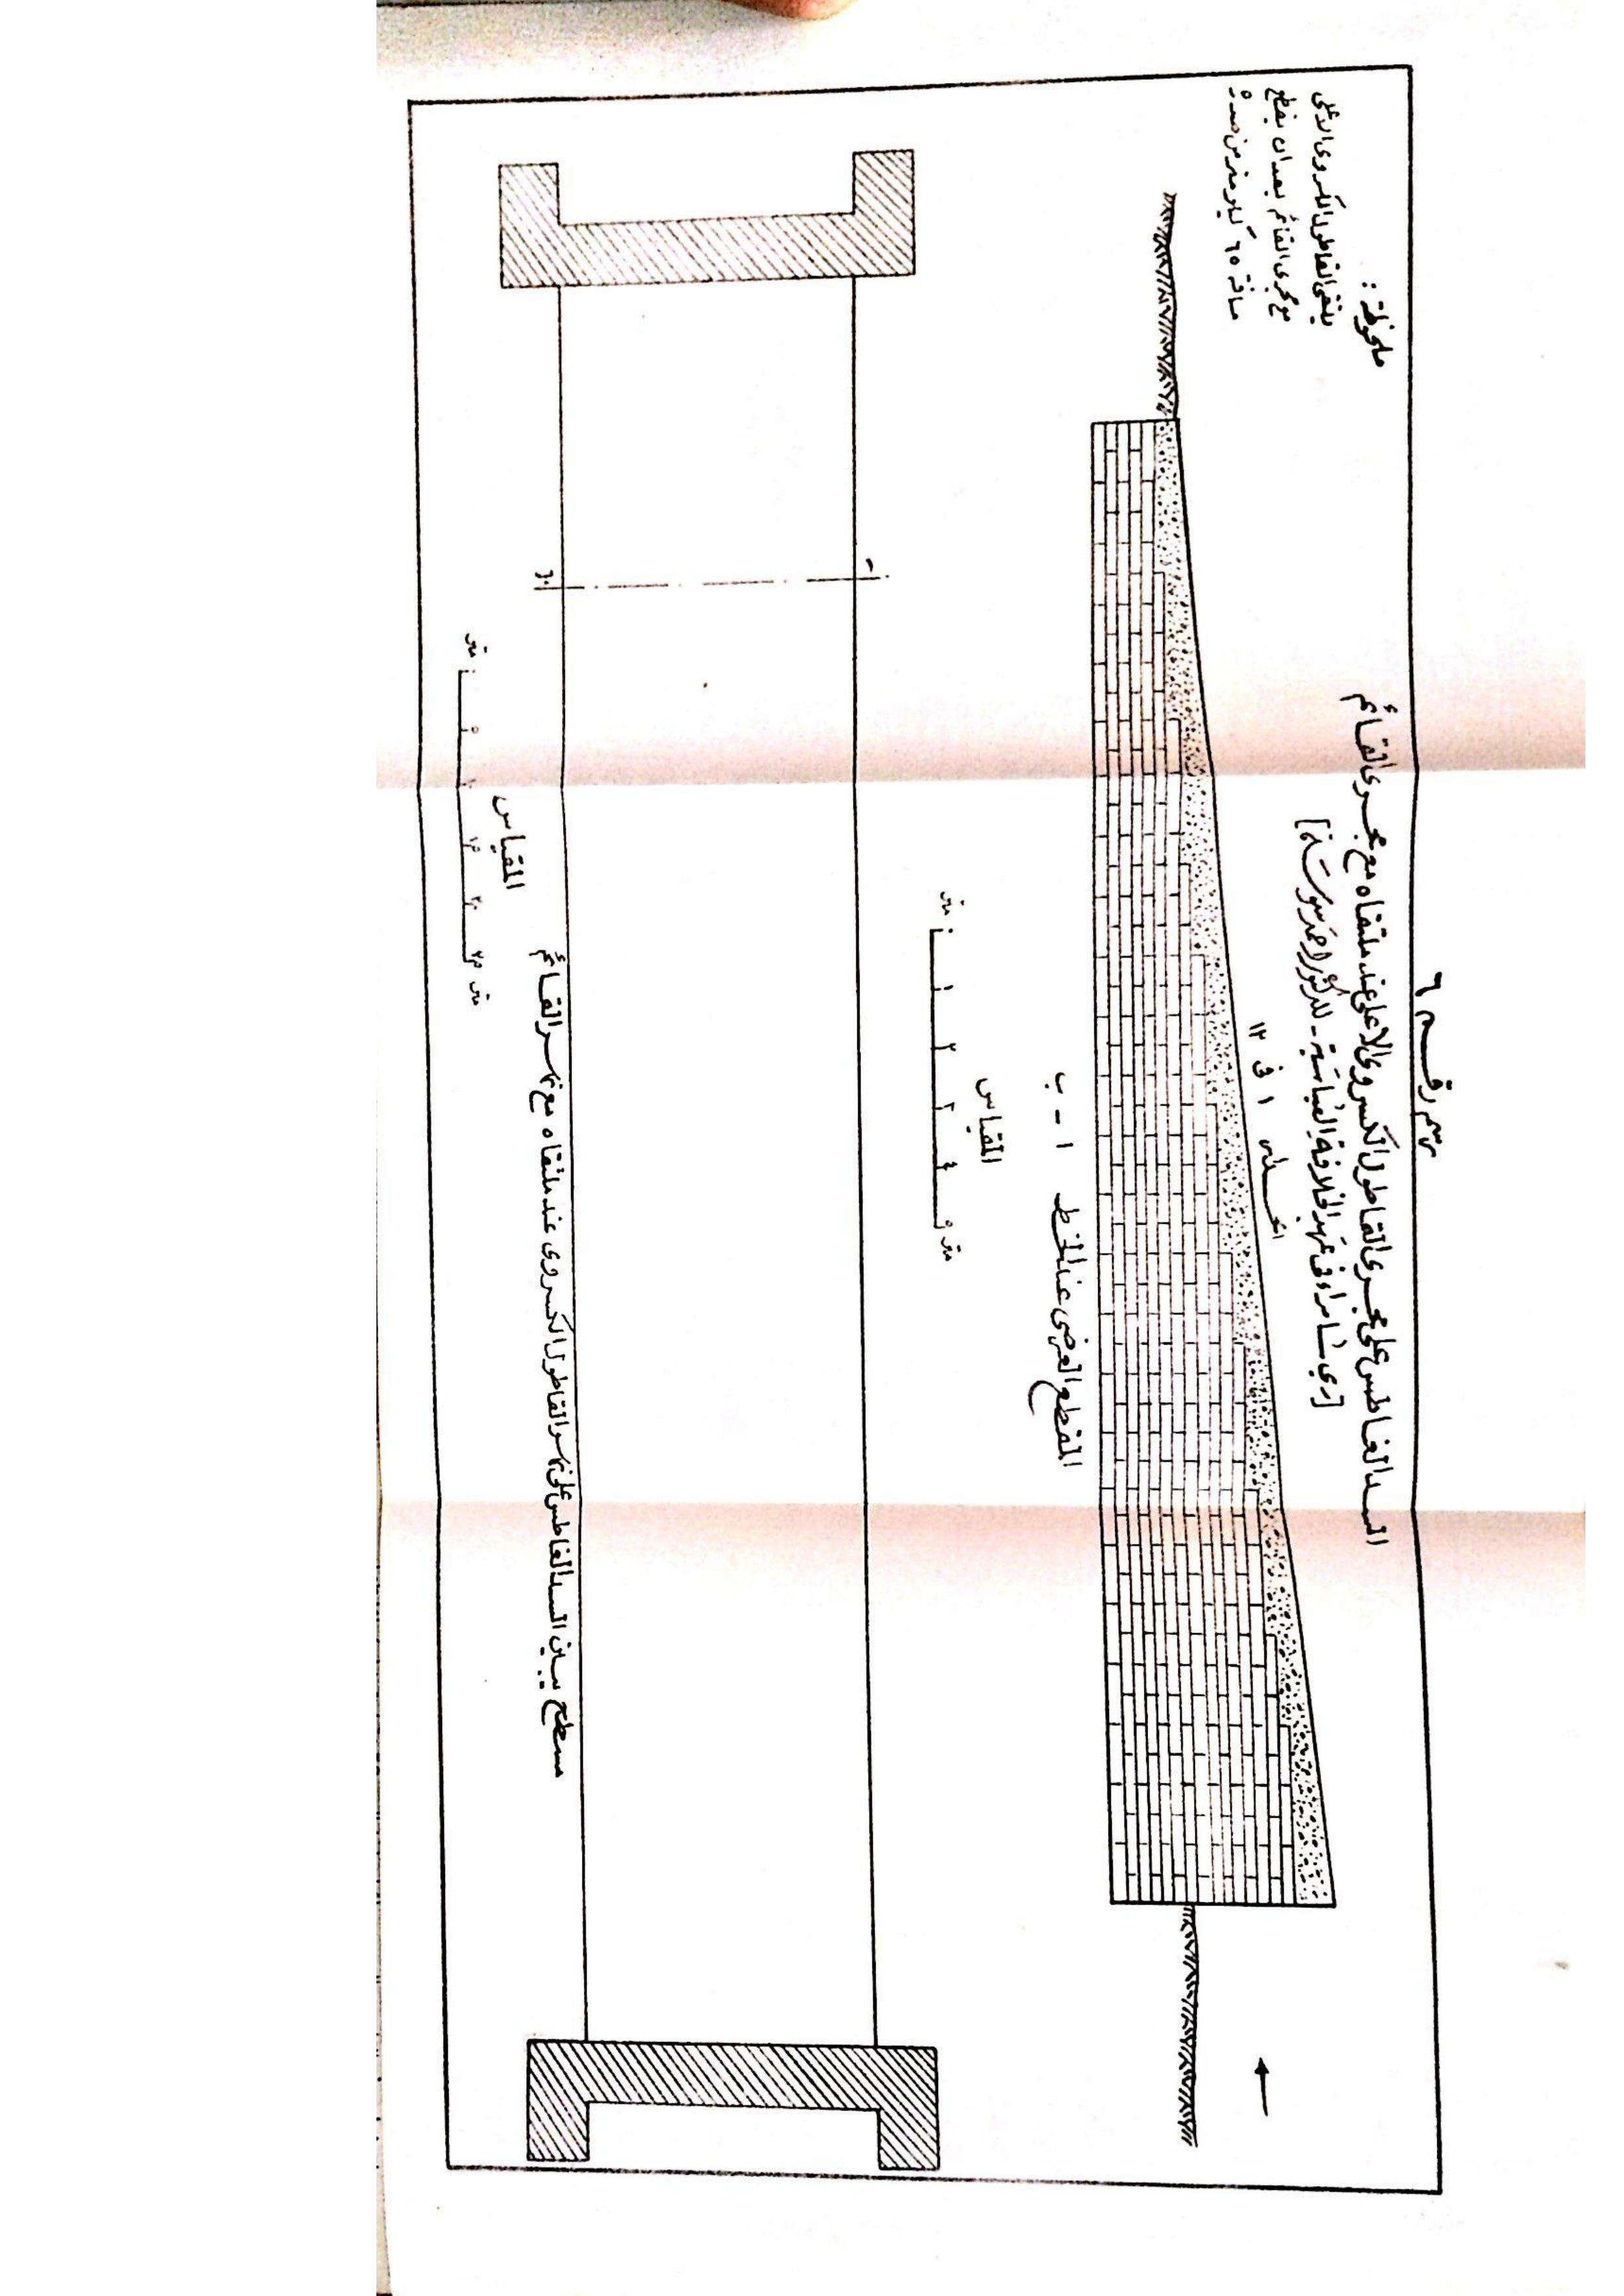 رسم رقم ٦
السد الغاطس على مجرى القاطول الكسروي الاعلى عند ملتقاه مع مجرى القائم
[ري سامراء في عهد الخلافة العباسية - للدكتور احمد سوسة]
ملحوظة :
يلتقي القاطول الكسروي الاعلى
مع مجرى القائم بعد ان يقطع
مسافة ٦٥ كيلومتر من صدره
انحدار ١ في ١٢
المقطع العرضي عند الخط ا - ب
المقياس
متر ٠ ١ ٢ ٣ ٤ ٥ متر
ا
ب
مسطح يبين السد الغاطس على نهر القاطول الكسروي عند ملتقاه مع نهر القائم
المقياس
متر ٠ ٥ ١٠ ١٥ ٢٠ ٢٥ متر